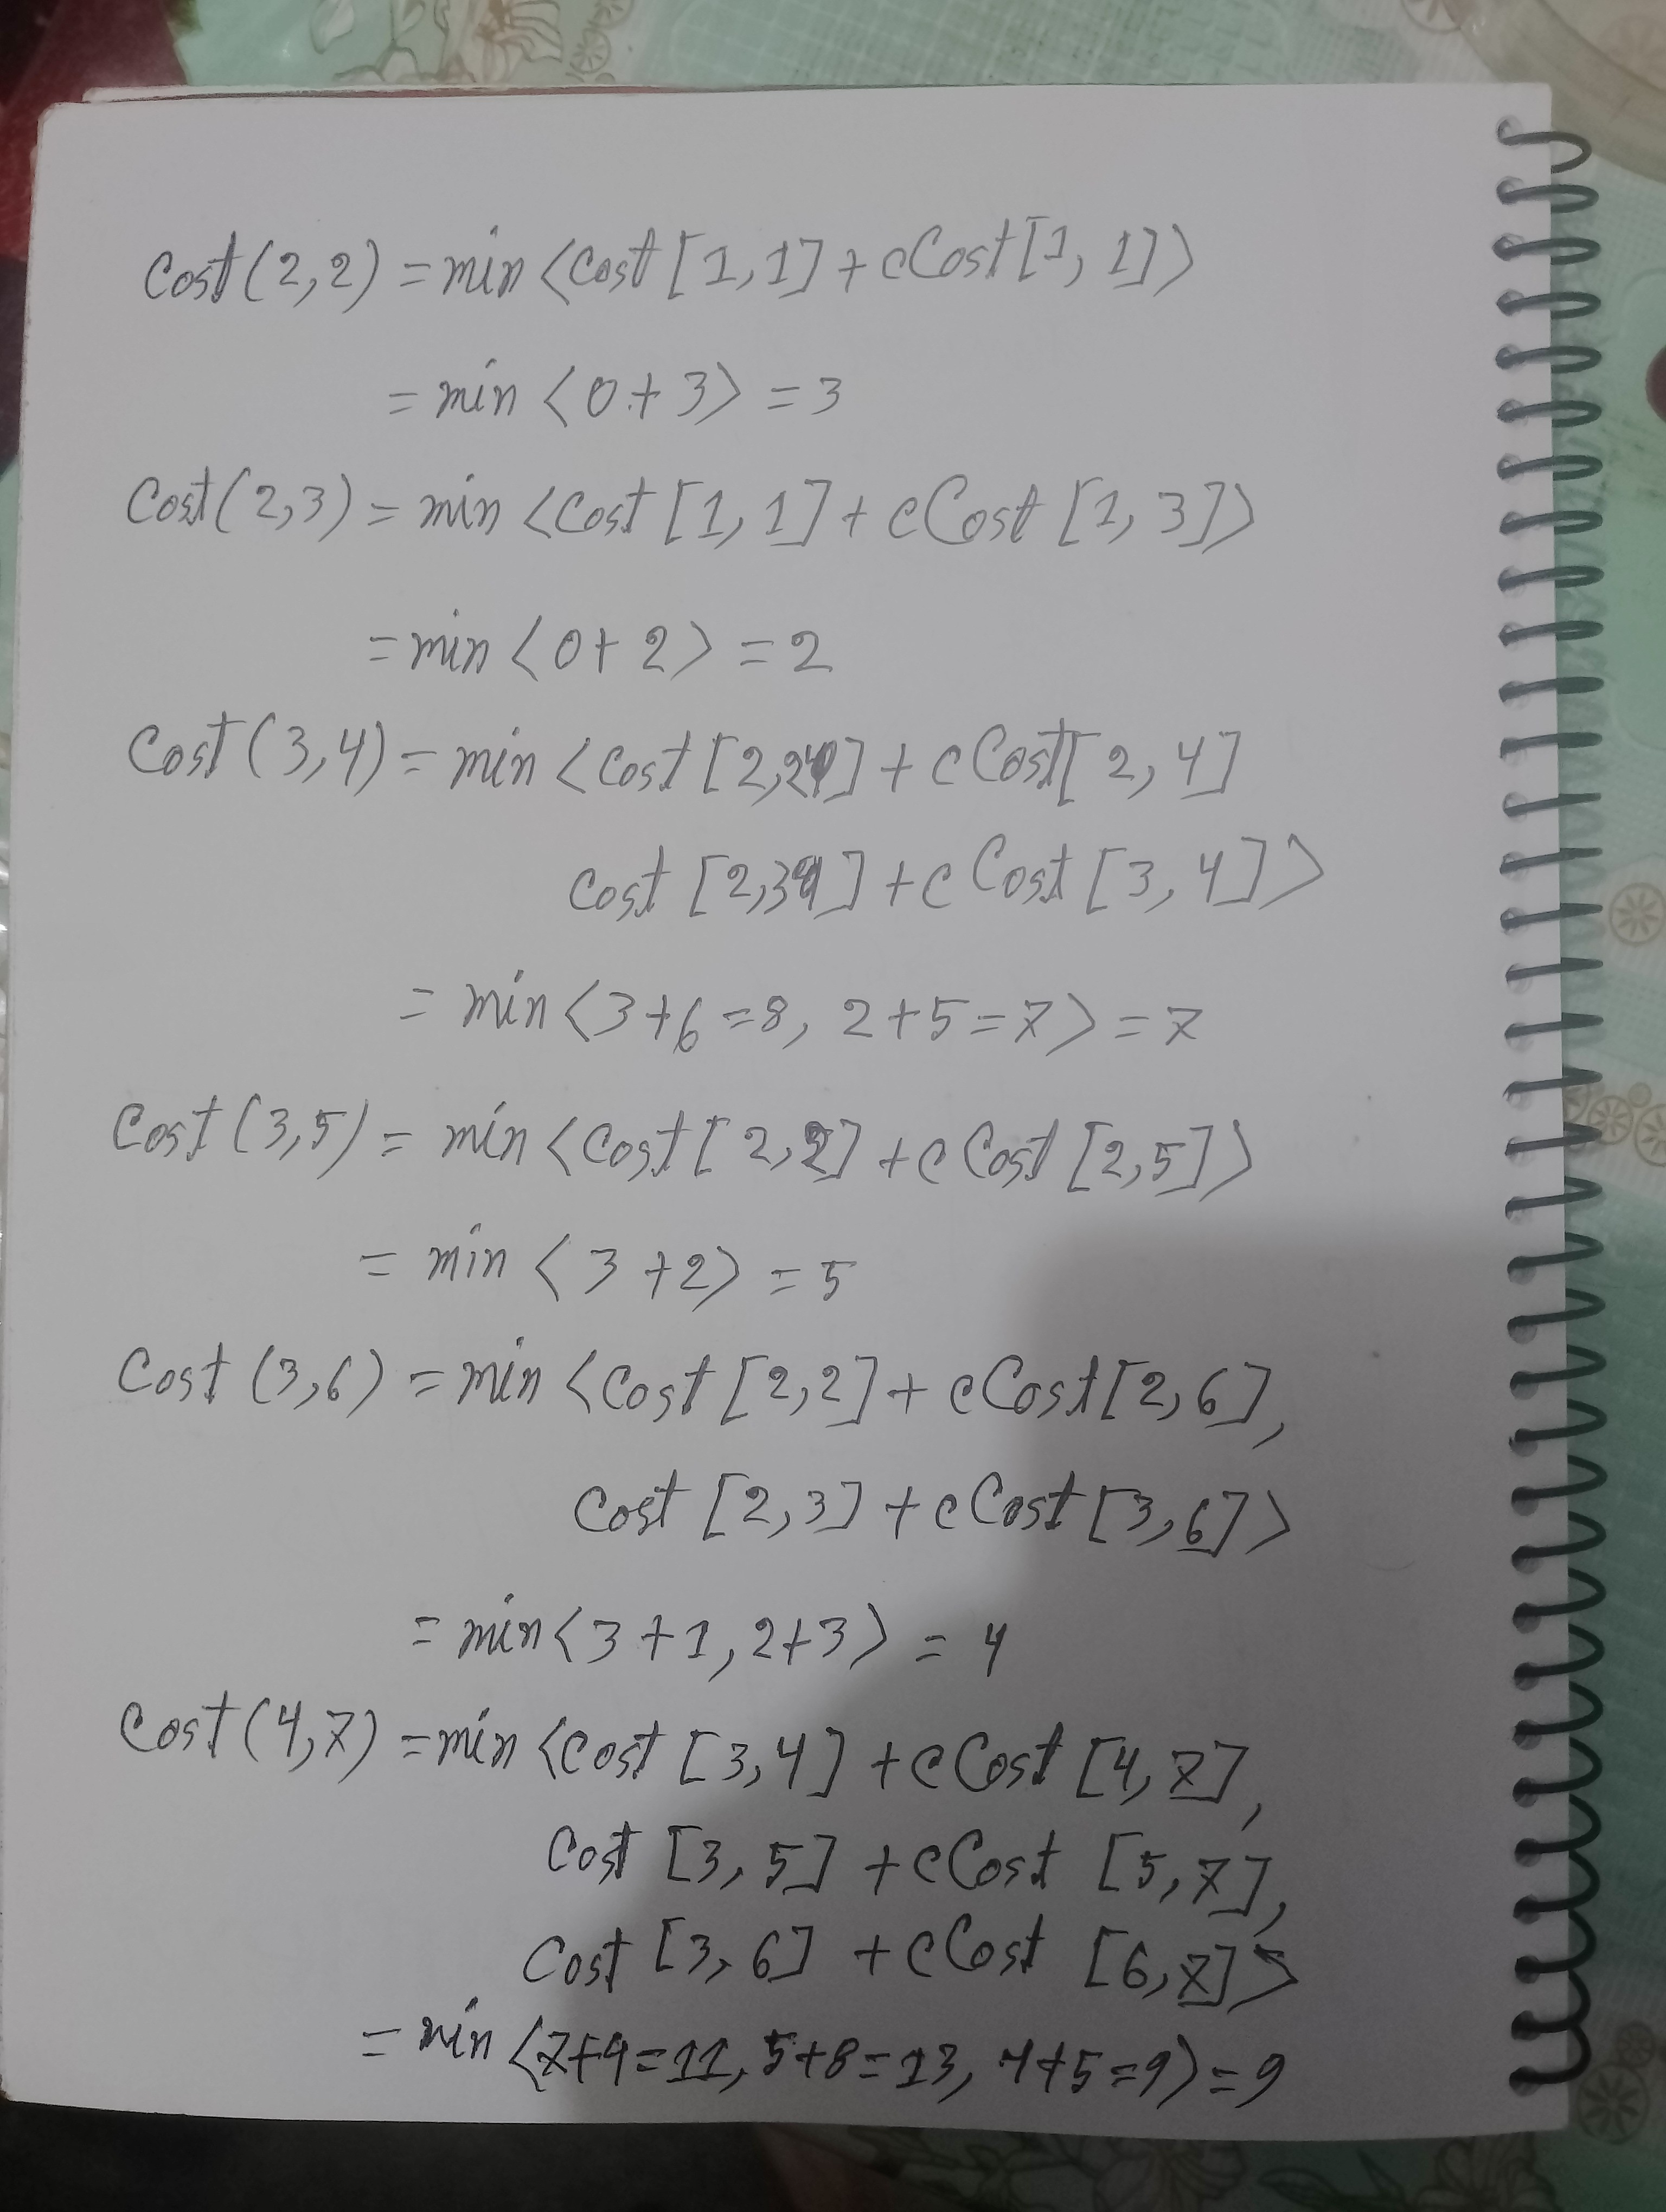 Cost(2,2) = min <Cost[1,1] + cCost[1,1]>
= min <0+3> = 3
Cost(2,3) = min <Cost[1,1] + cCost[1,3]>
= min <0+2> = 2
Cost(3,4) = min <Cost[2,2] + cCost[2,4]
Cost[2,3] + cCost[3,4]>
= min <3+6=8, 2+5=7> = 7
Cost(3,5) = min <Cost[2,2] + cCost[2,5]>
= min <3+2> = 5
Cost(3,6) = min <Cost[2,2] + cCost[2,6],
Cost[2,3] + cCost[3,6]>
= min <3+1, 2+3> = 4
Cost(4,7) = min <Cost[3,4] + cCost[4,7],
Cost[3,5] + cCost[5,7],
Cost[3,6] + cCost[6,7]>
= min <7+4=11, 5+8=13, 4+5=9> = 9